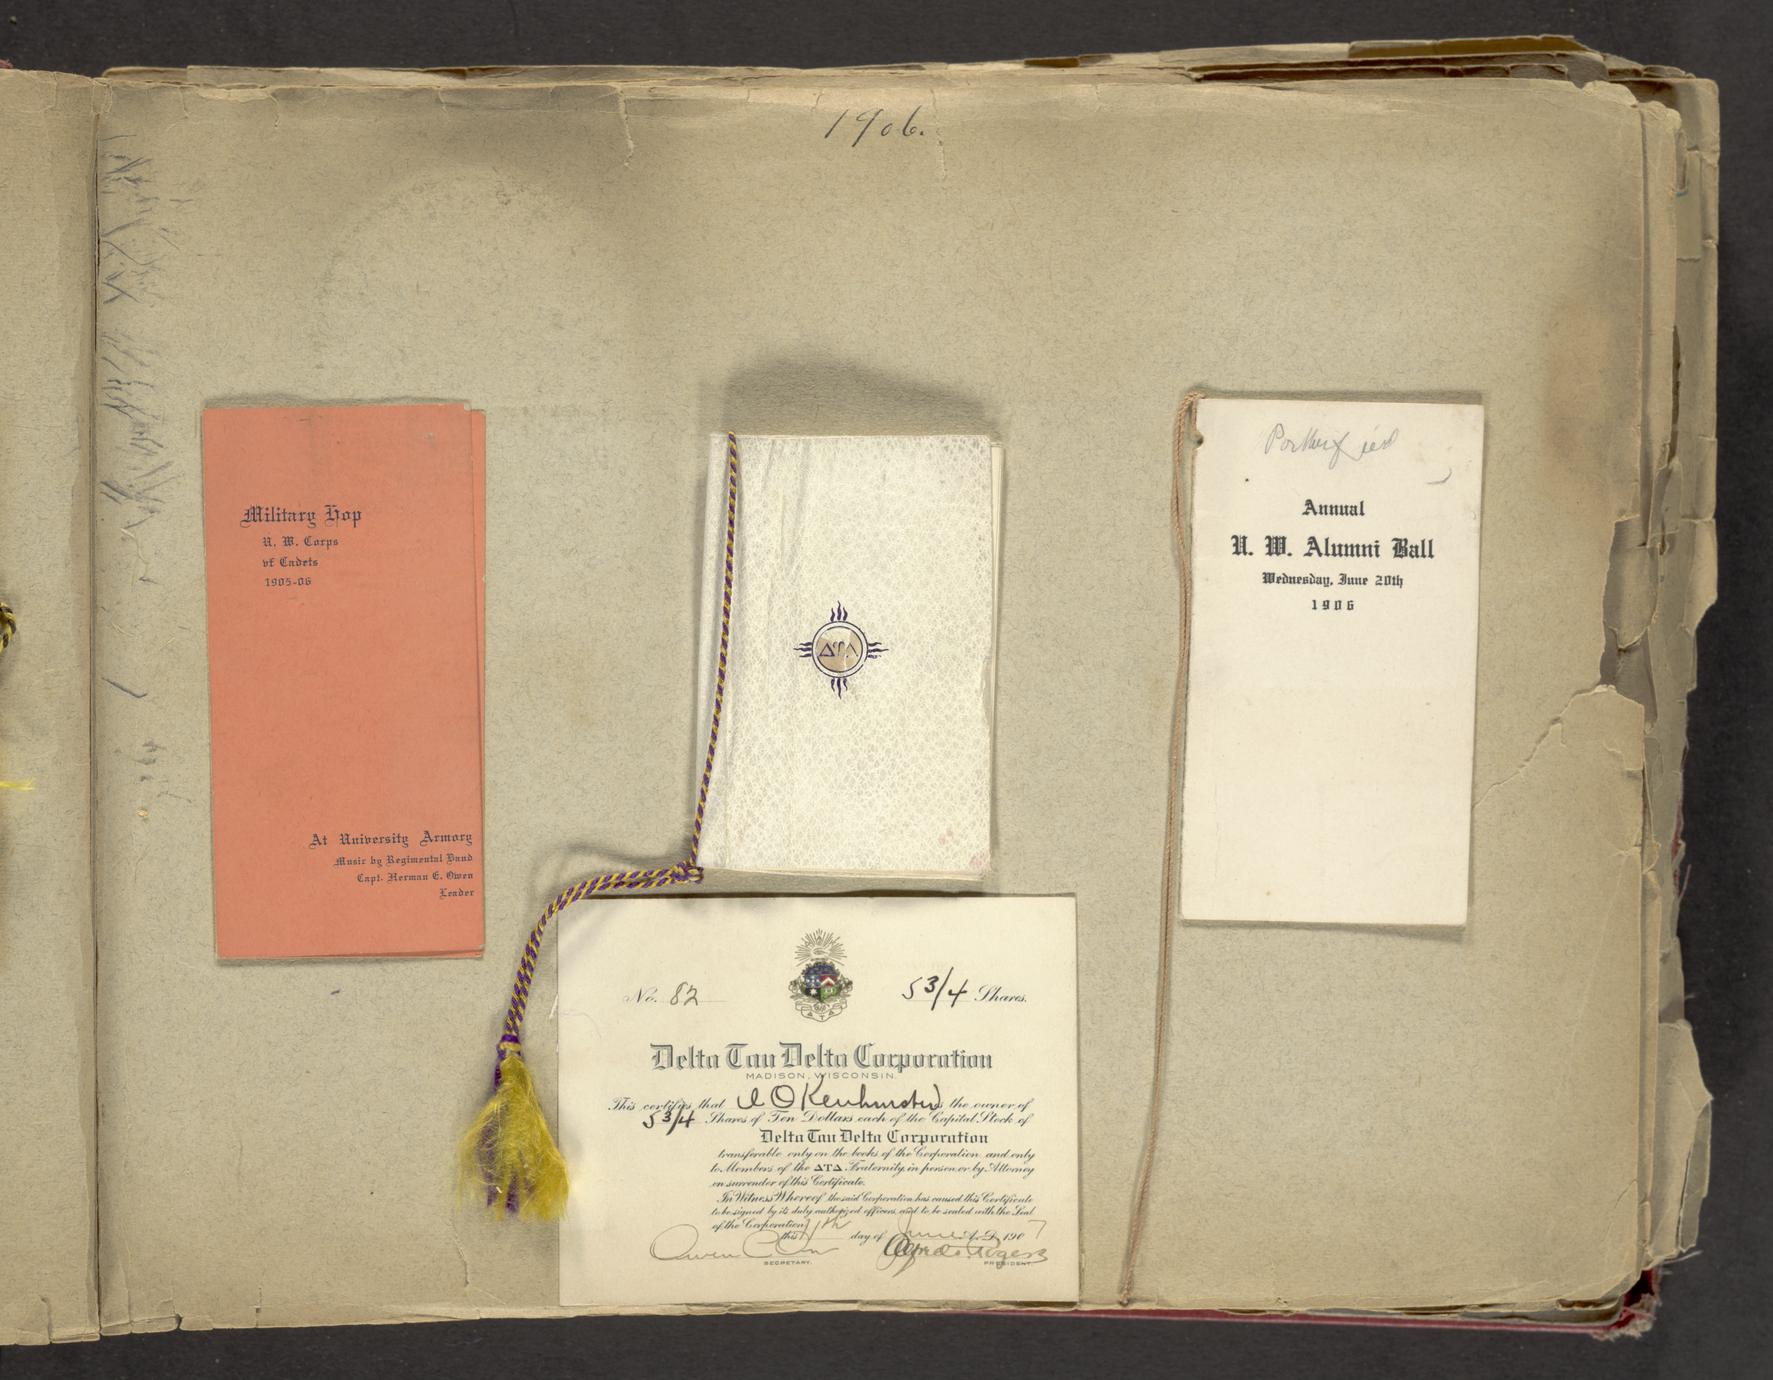 1906.
Military Hop
U. W. Corps
of Cadets
1905-06
At University Armory
Music by Regimental Band
Capt. Herman E. Owen
Leader
ΔΤΔ
Annual
U. W. Alumni Ball
Wednesday, June 20th
1906
No. 82
5 3/4 Shares.
ΔΤΔ
Delta Tau Delta Corporation
MADISON, WISCONSIN.
This certifies that is the owner of
5 3/4 Shares of Ten Dollars each of the Capital Stock of
Delta Tau Delta Corporation
transferable only on the books of the Corporation and only
to Members of the ΔΤΔ Fraternity in person or by Attorney
on surrender of this Certificate.
In Witness Whereof the said Corporation has caused this Certificate
to be signed by its duly authorized officers and to be sealed with the Seal
of the Corporation
this day of June A.D. 1907
Rogers
SECRETARY.
PRESIDENT.